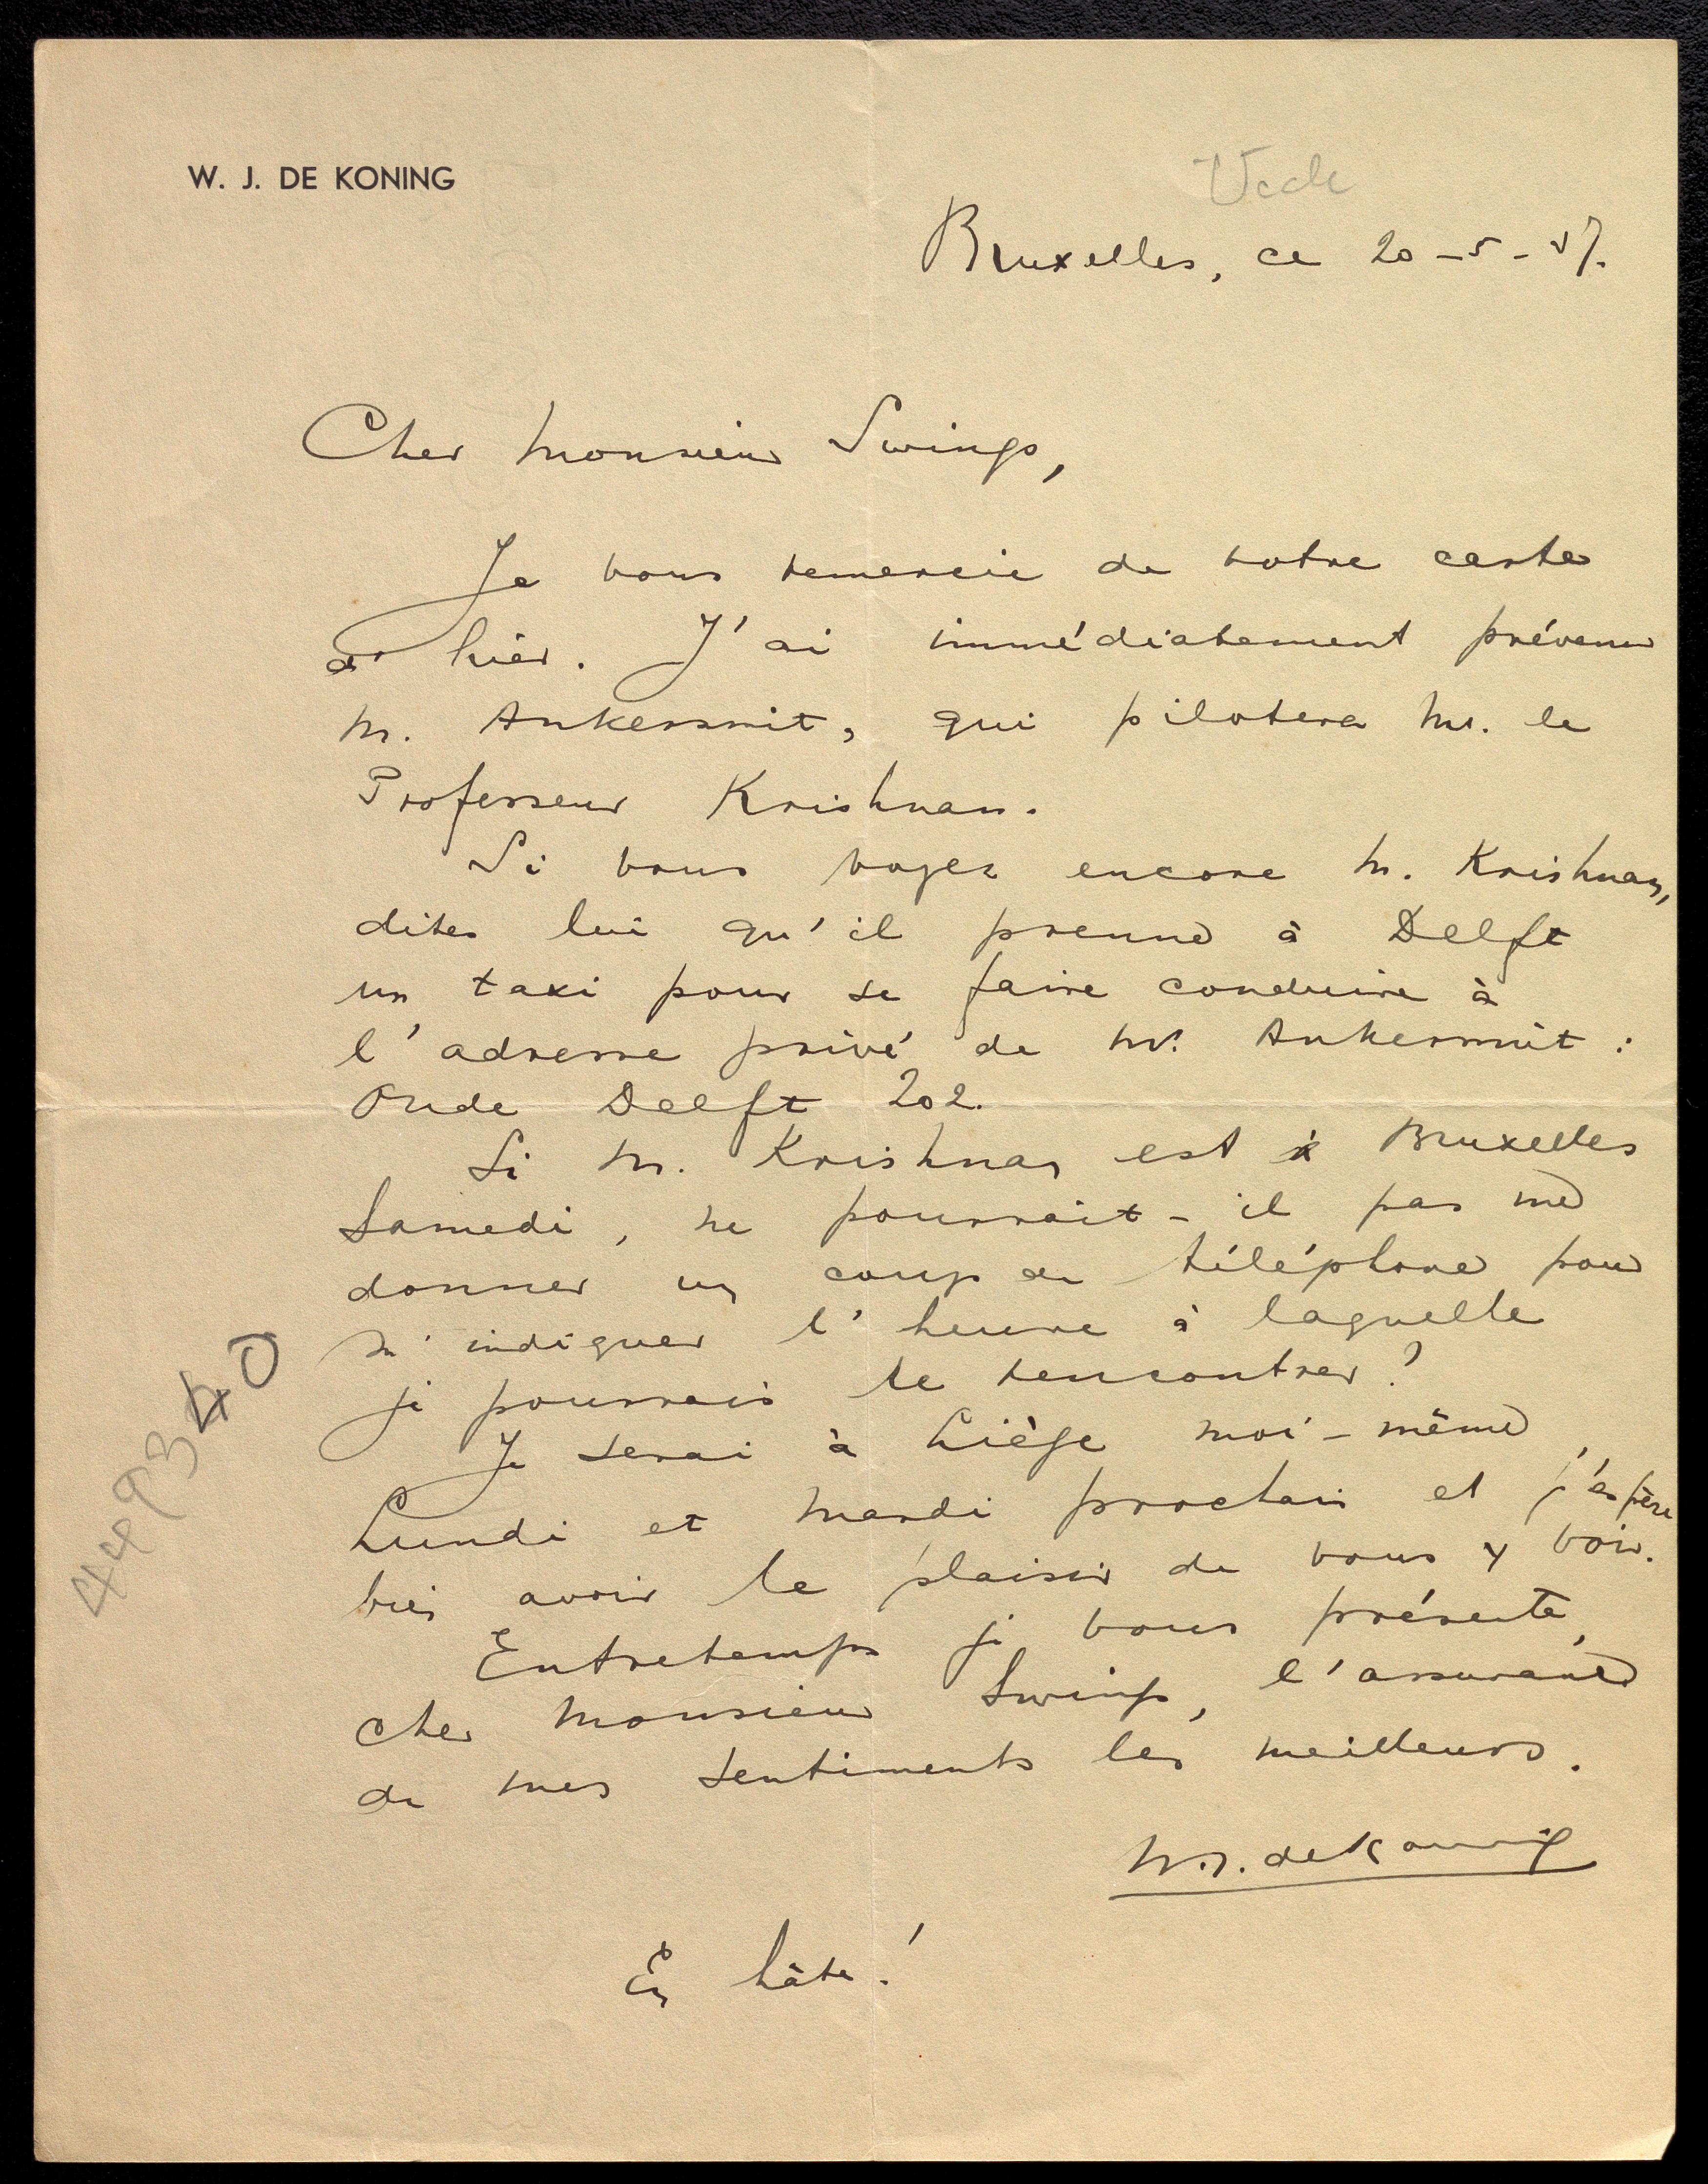 W. J. DE KONING
Uccle
Bruxelles, ce 20-5-37.
Cher Monsieur Swings,
Je vous remercie de votre carte
d'hier. J'ai immédiatement prévenu
M. Ankersmit, qui pilotera Mr. le
Professeur Krishnan.
Si vous voyez encore M. Krishnan,
dites lui qu'il prenne à Delft
un taxi pour se faire conduire à
l'adresse privé de Mr. Ankersmit :
Oude Delft 202.
Si M. Krishnan est à Bruxelles
Samedi, ne pourrait-il pas me
donner un coup de téléphone pour
m'indiquer l'heure à laquelle
je pourrais le rencontrer?
Je serai à Liège moi-même
Lundi et Mardi prochain et j'espère
bien avoir le plaisir de vous y voir.
Entretemps je vous présente,
cher Monsieur Swings, l'assurance
de mes sentiments les meilleurs.
W.J. de Koning
En hâte!
449340